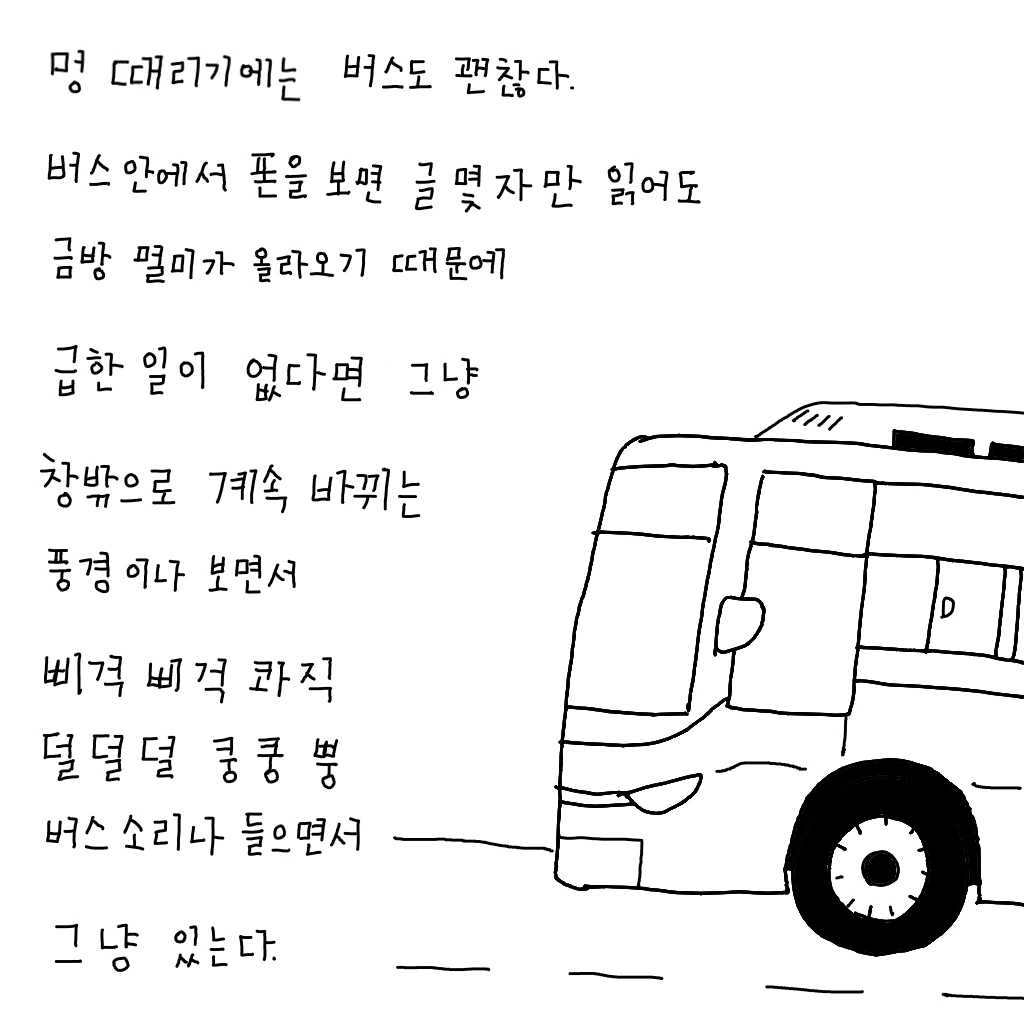 멍 때리기에는 버스도 괜찮다.
버스 안에서 폰을 보면 글 몇 자만 읽어도
금방 멀미가 올라오기 때문에
급한 일이 없다면 그냥
창밖으로 계속 바뀌는
풍경이나 보면서
삐걱 삐걱 콰직
덜덜덜 쿵쿵 뿡
버스 소리나 들으면서
그냥 있는다.